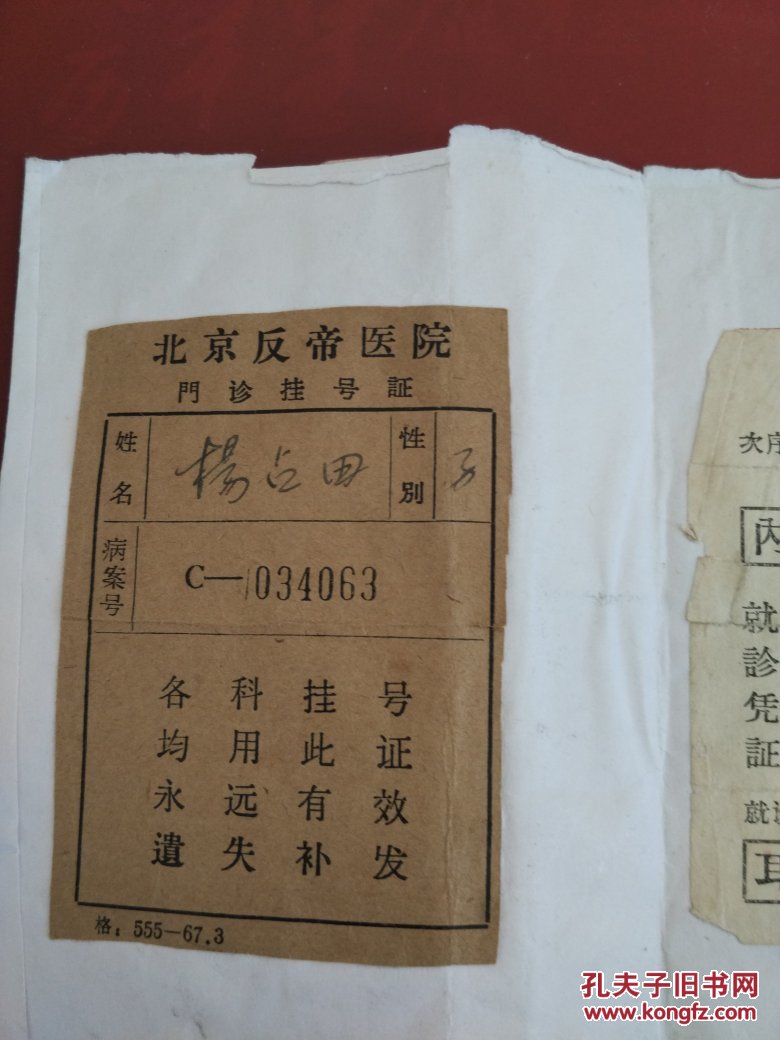 北京反帝医院
門诊挂号証
姓名
楊占田
性別
病案号
C—034063
各科挂号
均用此证
永远有效
遺失补发
格：555—67.3
次序
就
診
凭
証
就
孔夫子旧书网
www.kongfz.com